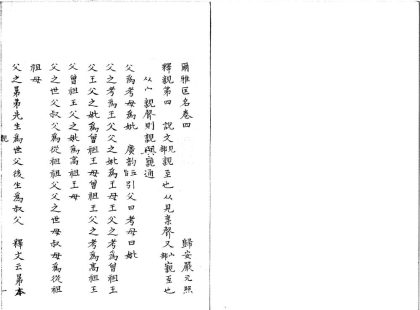 爾雅匡名卷四 歸安嚴元照
釋親第四 說文見部親至也从見亲聲又宀部寴至也
从宀親聲則親與寴通
父爲考母爲妣 廣韵五旨引父曰考母曰妣
父之考爲王父父之妣爲王母王父之考爲曾祖王
父王父之妣爲曾祖王母曾祖王父之考爲高祖王
父曾祖王父之妣爲高祖王母
父之世父叔父爲從祖祖父父之世母叔母爲從祖
祖母
父之晜弟先生爲世父後生爲叔父 釋文云弟本